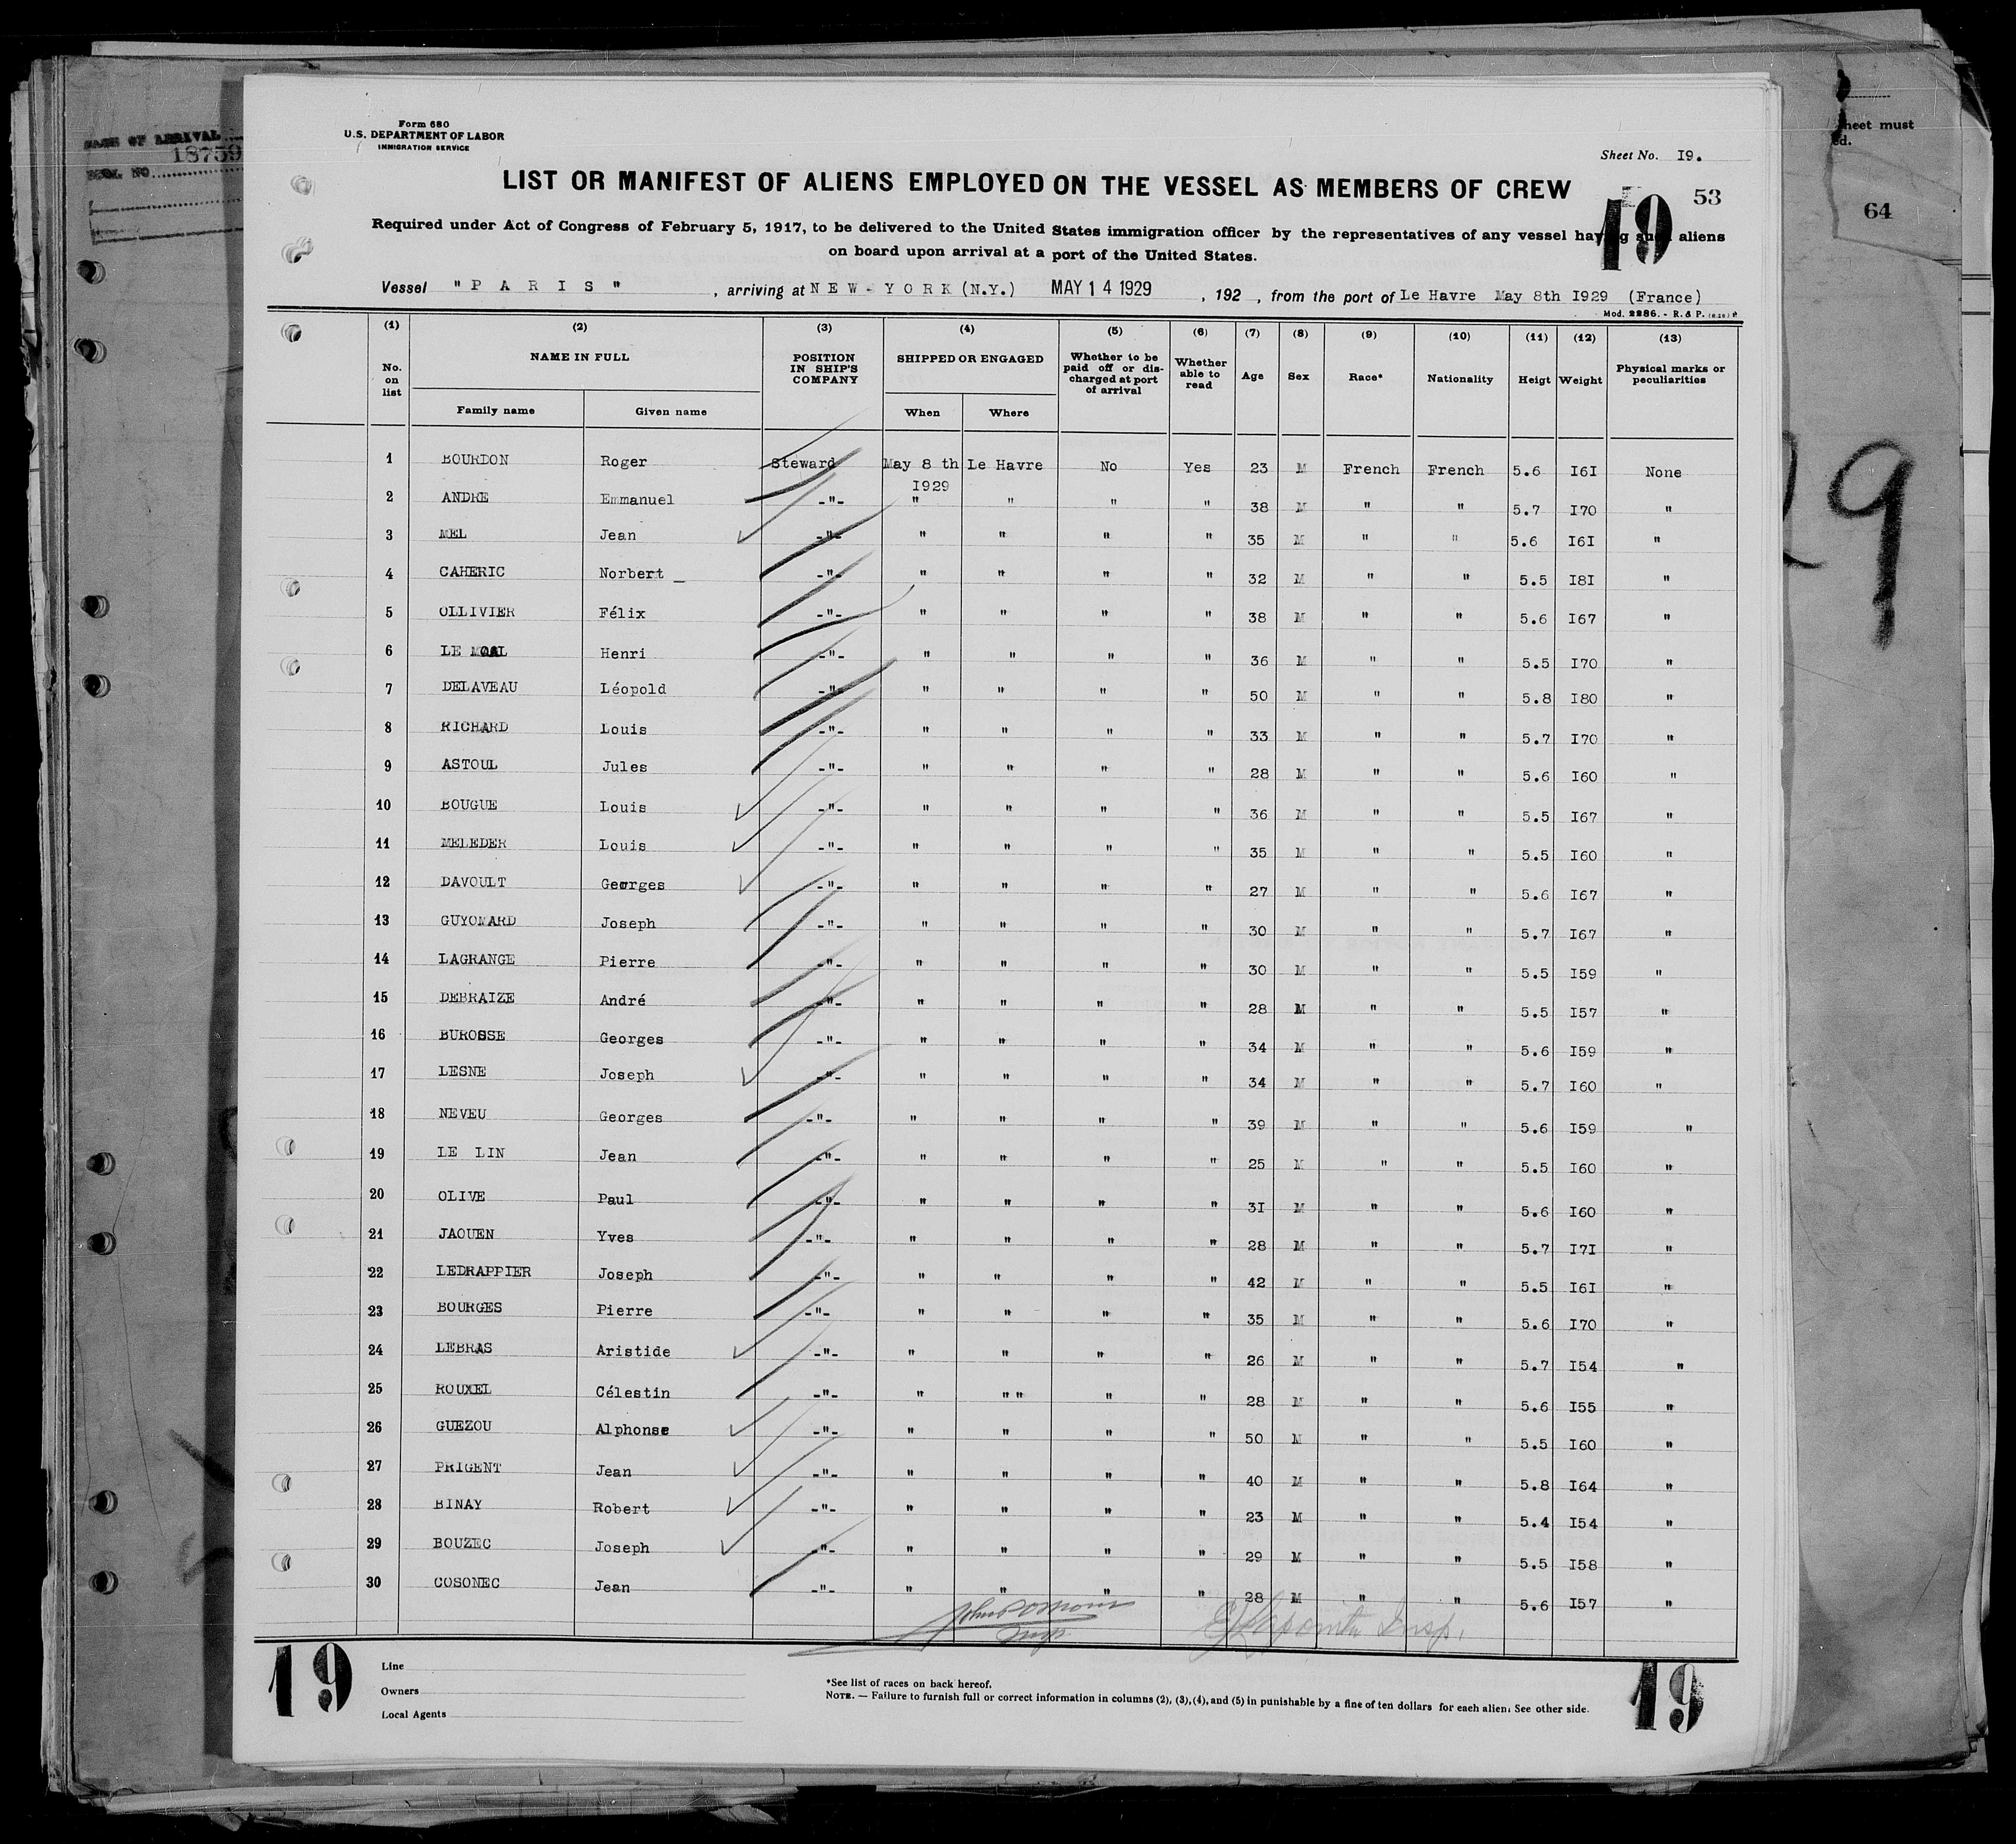 Form 680
U.S. DEPARTMENT OF LABOR
IMMIGRATION SERVICE
Sheet No. I9.
LIST OR MANIFEST OF ALIENS EMPLOYED ON THE VESSEL AS MEMBERS OF CREW
19 53
Required under Act of Congress of February 5, 1917, to be delivered to the United States immigration officer by the representatives of any vessel having such aliens
on board upon arrival at a port of the United States.
Vessel "PARIS", arriving at NEW-YORK (N.Y.) MAY 14 1929, 192 , from the port of Le Havre May 8th I929 (France)
Mod. 2286. - R. & P.
(1) (2) (3) (4) (5) (6) (7) (8) (9) (10) (11) (12) (13)
No. on list NAME IN FULL POSITION IN SHIP'S COMPANY SHIPPED OR ENGAGED Whether to be paid off or discharged at port of arrival Whether able to read Age Sex Race* Nationality Heigt Weight Physical marks or peculiarities
Family name Given name When Where
1 BOURDON Roger Steward May 8 th I929 Le Havre No Yes 23 M French French 5.6 I6I None
2 ANDRE Emmanuel -"- " " " " 38 M " " 5.7 I70 "
3 MEL Jean -"- " " " " 35 M " " 5.6 I6I "
4 CAHERIC Norbert _ -"- " " " " 32 M " " 5.5 I8I "
5 OLLIVIER Félix -"- " " " " 38 M " " 5.6 I67 "
6 LE MOAL Henri -"- " " " " 36 M " " 5.5 I70 "
7 DELAVEAU Léopold -"- " " " " 50 M " " 5.8 I80 "
8 RICHARD Louis -"- " " " " 33 M " " 5.7 I70 "
9 ASTOUL Jules -"- " " " " 28 M " " 5.6 I60 "
10 BOUGUE Louis -"- " " " " 36 M " " 5.5 I67 "
11 MELEDER Louis -"- " " " " 35 M " " 5.5 I60 "
12 DAVOULT Georges -"- " " " " 27 M " " 5.6 I67 "
13 GUYOMARD Joseph -"- " " " " 30 M " " 5.7 I67 "
14 LAGRANGE Pierre -"- " " " " 30 M " " 5.5 I59 "
15 DEBRAIZE André -"- " " " " 28 M " " 5.5 I57 "
16 BUROSSE Georges -"- " " " " 34 M " " 5.6 I59 "
17 LESNE Joseph -"- " " " " 34 M " " 5.7 I60 "
18 NEVEU Georges -"- " " " " 39 M " " 5.6 I59 "
19 LE LIN Jean -"- " " " " 25 M " " 5.5 I60 "
20 OLIVE Paul -"- " " " " 3I M " " 5.6 I60 "
21 JAOUEN Yves -"- " " " " 28 M " " 5.7 I7I "
22 LEDRAPPIER Joseph -"- " " " " 42 M " " 5.5 I6I "
23 BOURGES Pierre -"- " " " " 35 M " " 5.6 I70 "
24 LEBRAS Aristide -"- " " " " 26 M " " 5.7 I54 "
25 ROUXEL Célestin -"- " " " " " 28 M " " 5.6 I55 "
26 GUEZOU Alphonse -"- " " " " 50 M " " 5.5 I60 "
27 PRIGENT Jean -"- " " " " 40 M " " 5.8 I64 "
28 BINAY Robert -"- " " " " 23 M " " 5.4 I54 "
29 BOUZEC Joseph -"- " " " " 29 M " " 5.5 I58 "
30 COSONEC Jean -"- " " " " 28 M " " 5.6 I57 "
Insp.
19 19
Line
Owners
Local Agents
*See list of races on back hereof.
NOTE. — Failure to furnish full or correct information in columns (2), (3), (4), and (5) in punishable by a fine of ten dollars for each alien. See other side.
18759
64